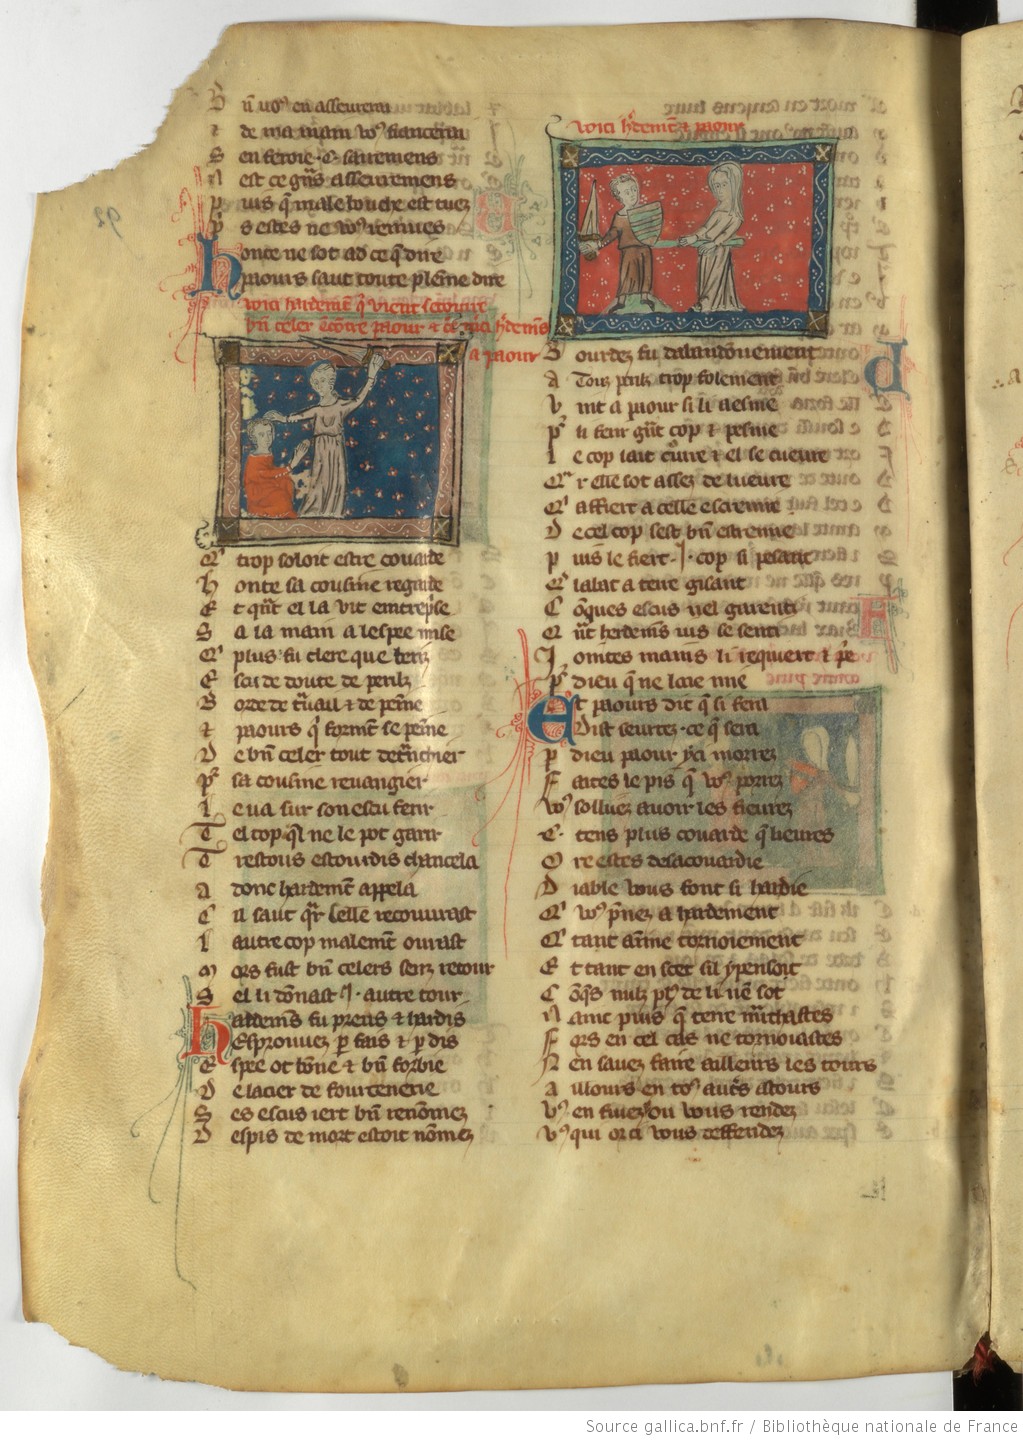 S uꝰ en asseurera
E de ma main vous fiancera
S en feroie .c. sairemens
N est ce grans asseuremens
P uis q̃ male bouche est tuez
P s estes ne vꝰ remues
Honte ne sot ad ce q̃ dire
Paours saut toute plēine dire
Voici hardemēt q̃ vient secourre
bñ celer cōtre paour
a paour
Q' trop soloit estre couarde
H onte sa cousine regarde
E t q̃nt el la vit entrep̃se
S a la main a lespee mise
Q' plus fu clere que
E
B orde de t̃uail ⁊ de peine
⁊ paours q̃ forment se peine
D e bñ celer tout det̃nchier
P' sa cousine revangier
L e va sur son escu ferir
T el cop q̃l ne se pot garir
T restous estourdis chancela
A donc hardemēt appela
C il saut q̃r selle recouvrast
L autre cop malemēt ouvrast
M ors fust bñ celers senz retour
S el li dōnast .j. autre tour
Hardemēs fu preus ⁊ hardis
Esprouvez p fais ⁊ p dis
E spee ot bōne ⁊ bñ forbie
D e lacier de fourcenerie
S es escus iert bñ renōmez
D espis de mort estoit nōmez
Voici hardemēt ⁊ paour
B ourdez fu dabandōnement
A Touz perilz trop folement
V int a paour si li aesme
P' li ferir g̃nt cop ⁊ pesme
L e cop lait courre ⁊ el se cueuvre
Q' r elle sot assez de lueure
Q' affiert a celle escremie
D e cel cop sest bñ
P uis le fiert .j. cop si pesant
Q' labat a terre gisant
C ōques escus nel garenti
Q̃nt herdemēs ius se senti
J ointes mains li requiert ⁊ p̃e
P' dieu q̃ ne locie mie
Et paours dit q̃ si fera
Dist seurtez ce q̃ sera
P dieu paour yci morrez
F aites le pis q̃ vꝰ porrez
Vꝰ solliez avoir les fievres
C. tens plus couarde q̃ lievres
O re estes desacouardie
D iable vous font si hardie
Q' vꝰ p̃nez a hardement
Q' tant aĩme tornoiement
E t tant en scet sil ypensoit
C ōq̃s nulz plꝰ de li nē sot
N
F ors en cel cas ne tornoiastes
N en savez faire ailleurs les tours
A illours en toꝰ aut̃s estours
Vꝰ en fuiez ou vous rendez
Vꝰ qui or ci vous deffendez
92
Source gallica.bnf.fr / Bibliothèque nationale de France